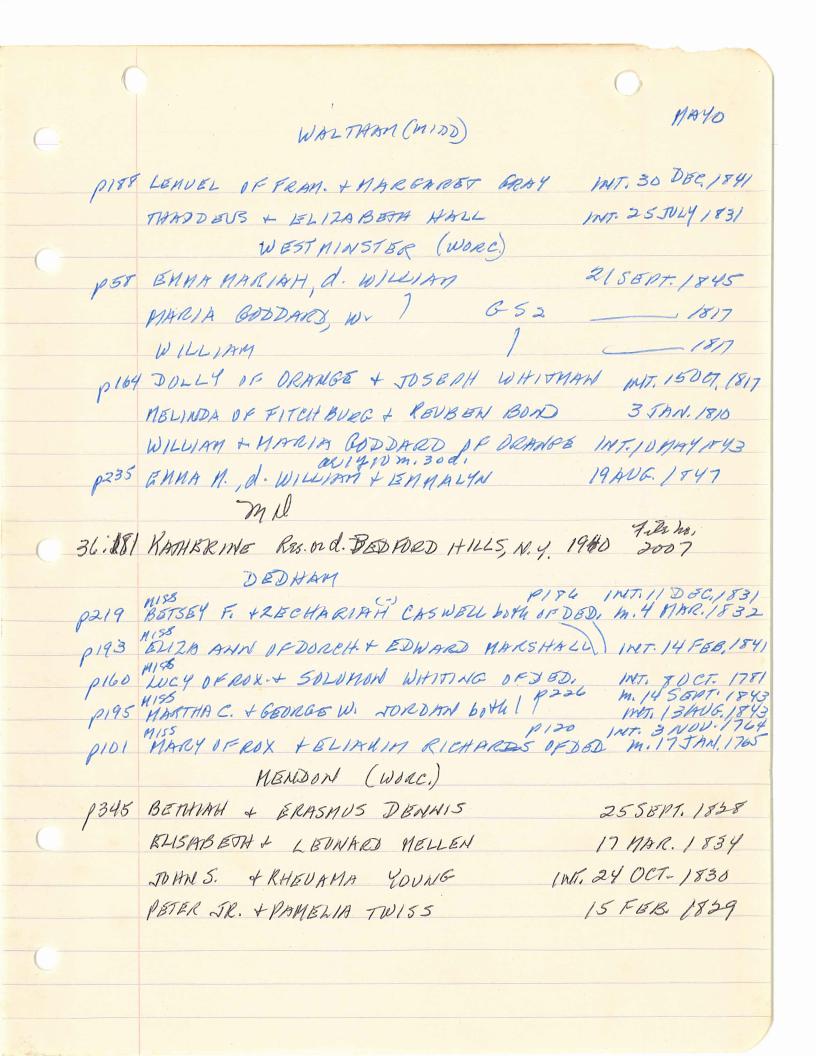 MAYO
WALTHAM (MIDD)
p188 LEMUEL OF FRAM. + MARGARET GRAY INT. 30 DEC. 1841
THADDEUS + ELIZABETH HALL INT. 25 JULY 1831
WESTMINSTER (WORC.)
p58 EMMA MARIAH, d. WILLIAM 21 SEPT. 1845
MARIA GODDARD, W. GS2 1817
WILLIAM 1817
p164 DOLLY OF ORANGE + JOSEPH WHITMAN INT. 15 OCT. 1817
MELINDA OF FITCHBURG + REUBEN BOND 3 JAN. 1810
WILLIAM + MARIA GODDARD OF ORANGE INT. 10 MAY 1843
a. 1 y. 10 m. 30 d.
p235 EMMA M., d. WILLIAM + EMMALYN 19 AUG. 1847
MD
36:181 KATHERINE Res. or d. BEDFORD HILLS, N.Y. 1940 File no. 2007
DEDHAM
p186 INT. 11 DEC. 1831
p219 MISS BETSEY F. + ZECHARIAH (-) CASWELL both OF DED. m. 4 MAR. 1832
p193 MISS ELIZA ANN OF DORCH. + EDWARD MARSHALL INT. 14 FEB. 1841
p160 MISS LUCY OF ROX. + SOLOMON WHITING OF DED. INT. 8 OCT. 1781
p226 m. 14 SEPT. 1843
p195 MISS MARTHA C. + GEORGE W. JORDAN both INT. 13 AUG. 1843
p120 INT. 3 NOV. 1764
p101 MISS MARY OF ROX + ELIAKIM RICHARDS OF DED m. 17 JAN. 1765
MENDON (WORC.)
p345 BETHIAH + ERASMUS DENNIS 25 SEPT. 1828
ELISABETH + LEONARD MELLEN 17 MAR. 1834
JOHN S. + RHEUAMA YOUNG INT. 24 OCT. 1830
PETER JR. + PAMELIA TWISS 15 FEB. 1829